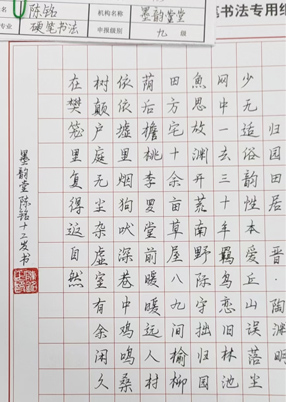 名 陈铭 机构名称 墨韵堂
专业 硬笔书法 申报级别 九级
笔书法专用纸
归园田居 晋·陶渊明
少无适俗韵性本爱丘山误落尘
网中一去三十年羁鸟恋旧林池
魚思故渊开荒南野际守拙归园
田方宅十余亩草屋八九间榆柳
荫后檐桃李罗堂前暧暧远人村
依依墟里烟狗吠深巷中鸡鸣桑
树颠户庭无尘杂虚室有余闲久
在樊笼里复得返自然
墨韵堂陈铭十二岁书